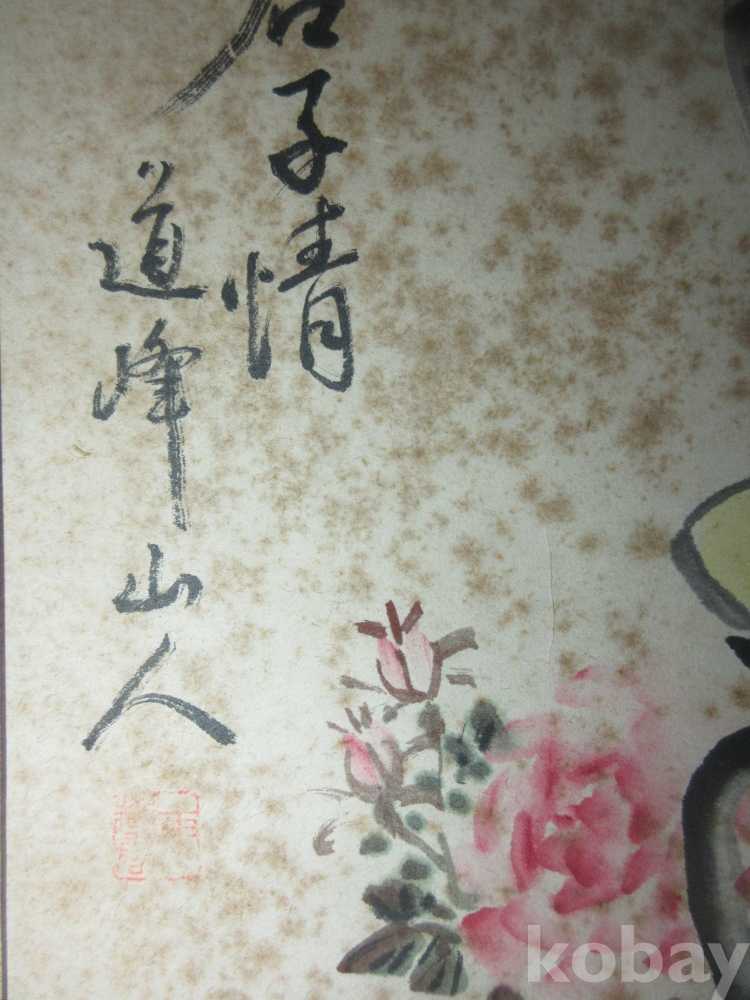 君子情
道峰山人
kobay